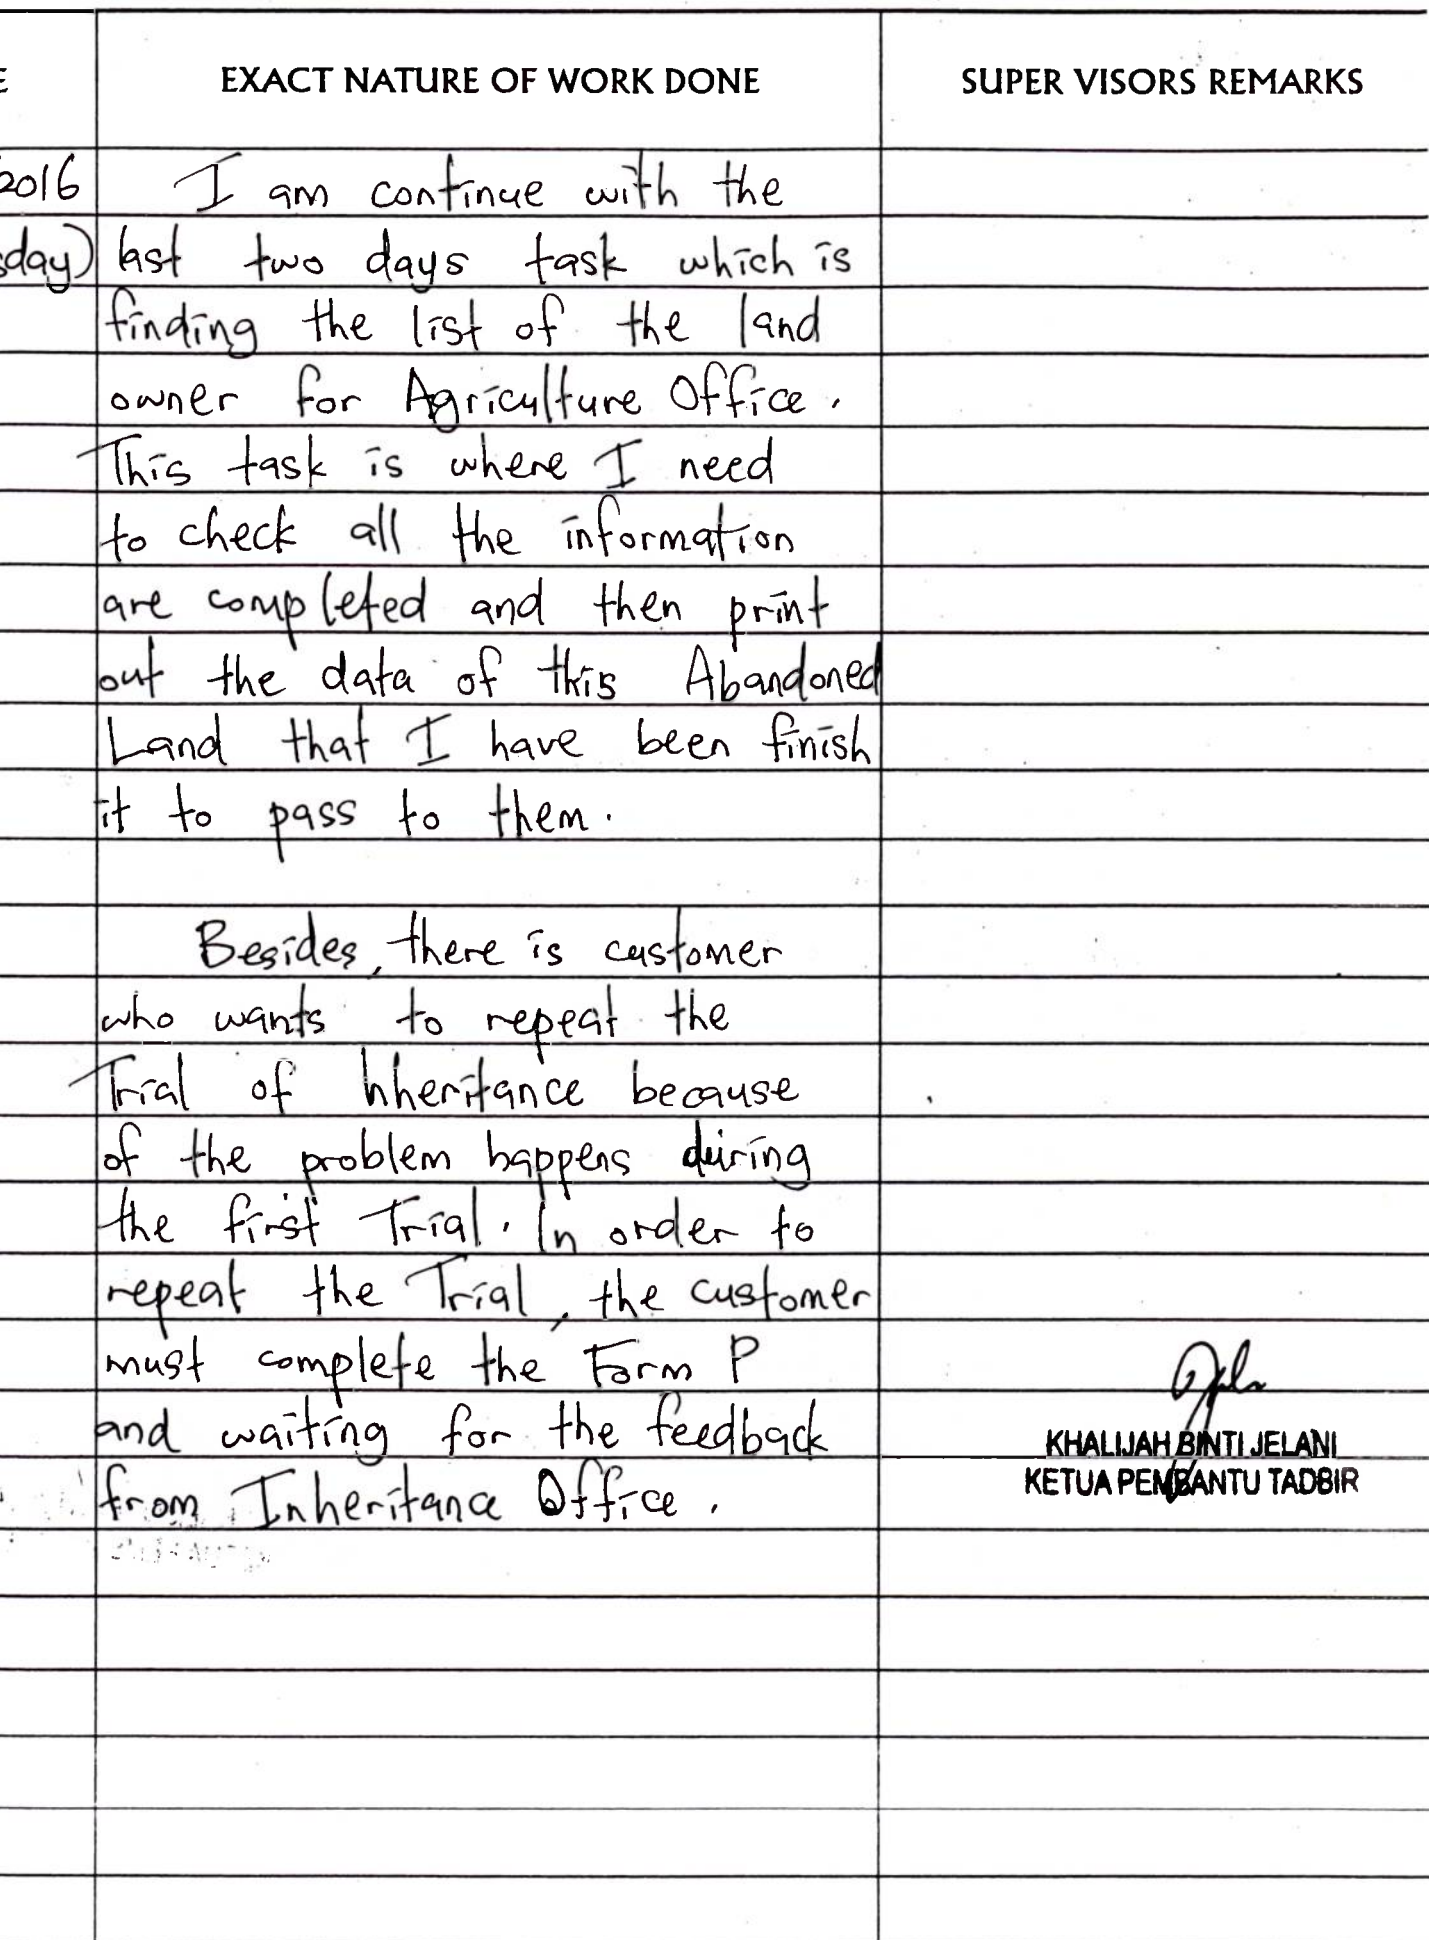 E EXACT NATURE OF WORK DONE SUPER VISORS REMARKS
2016 I am continue with the
sday) last two days task which is
finding the list of the land
owner for Agriculture Office.
This task is where I need
to check all the information
are completed and then print
out the data of this Abandoned
Land that I have been finish
it to pass to them.
Besides, there is customer
who wants to repeat the
Trial of Inheritance because
of the problem happens during
the first Trial. In order to
repeat the Trial, the customer
must complete the Form P
and waiting for the feedback
KHALIJAH BINTI JELANI
from Inheritance Office.
KETUA PEMBANTU TADBIR